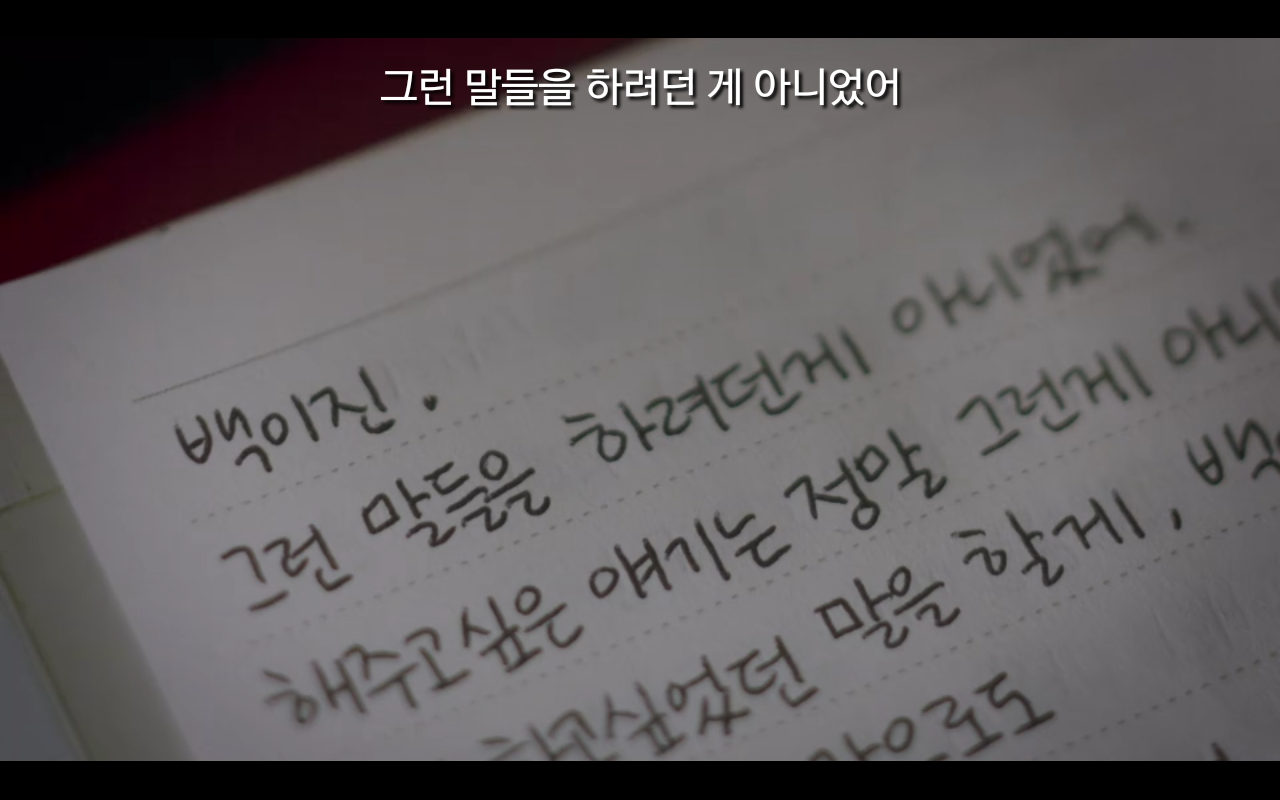 그런 말들을 하려던 게 아니었어
백이진.
그런 말들을 하려던게 아니었어.
해주고싶은 얘기는 정말 그런게
하고싶었던 말을 할게,